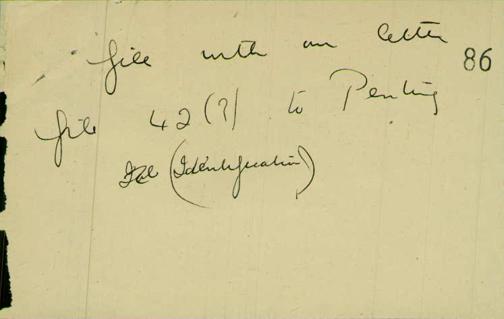 file with our letter
86
file 42(?) to Penting
(Identification)